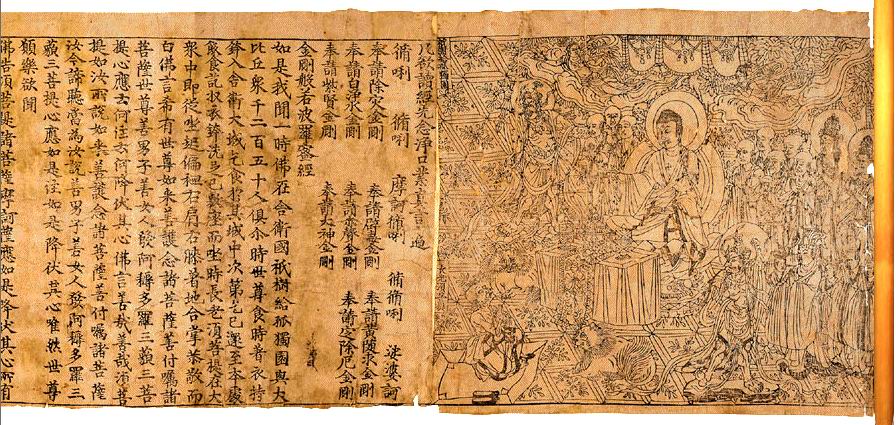 凡欲讀經先念淨口業真言一遍
脩唎 脩唎 摩訶脩唎 脩脩唎 娑婆訶
奉請除灾金剛 奉請辟毒金剛 奉請黄随求金剛
奉請白淨水金剛 奉請赤聲金剛 奉請定除厄金剛
奉請紫賢金剛 奉請大神金剛
金剛般若波羅蜜經
如是我聞一時佛在舍衛國祇樹給孤獨園與大
比丘衆千二百五十人俱尒時世尊食時著衣持
鉢入舍衛大城乞食於其城中次第乞已還至本處
飯食訖收衣鉢洗足已敷座而坐時長老湏菩提在大
衆中即從座起偏袒右肩右膝著地合掌恭敬而
白佛言希有世尊如来善護念諸菩薩善付囑諸
菩薩世尊善男子善女人發阿耨多羅三藐三菩
提心應云何住云何降伏其心佛言善哉善哉湏菩
提如汝所說如来善護念諸菩薩善付囑諸菩薩
汝今諦聽當為汝說善男子善女人發阿耨多羅三
藐三菩提心應如是住如是降伏其心唯然世尊
願樂欲聞
佛告湏菩提諸菩薩摩訶薩應如是降伏其心所有